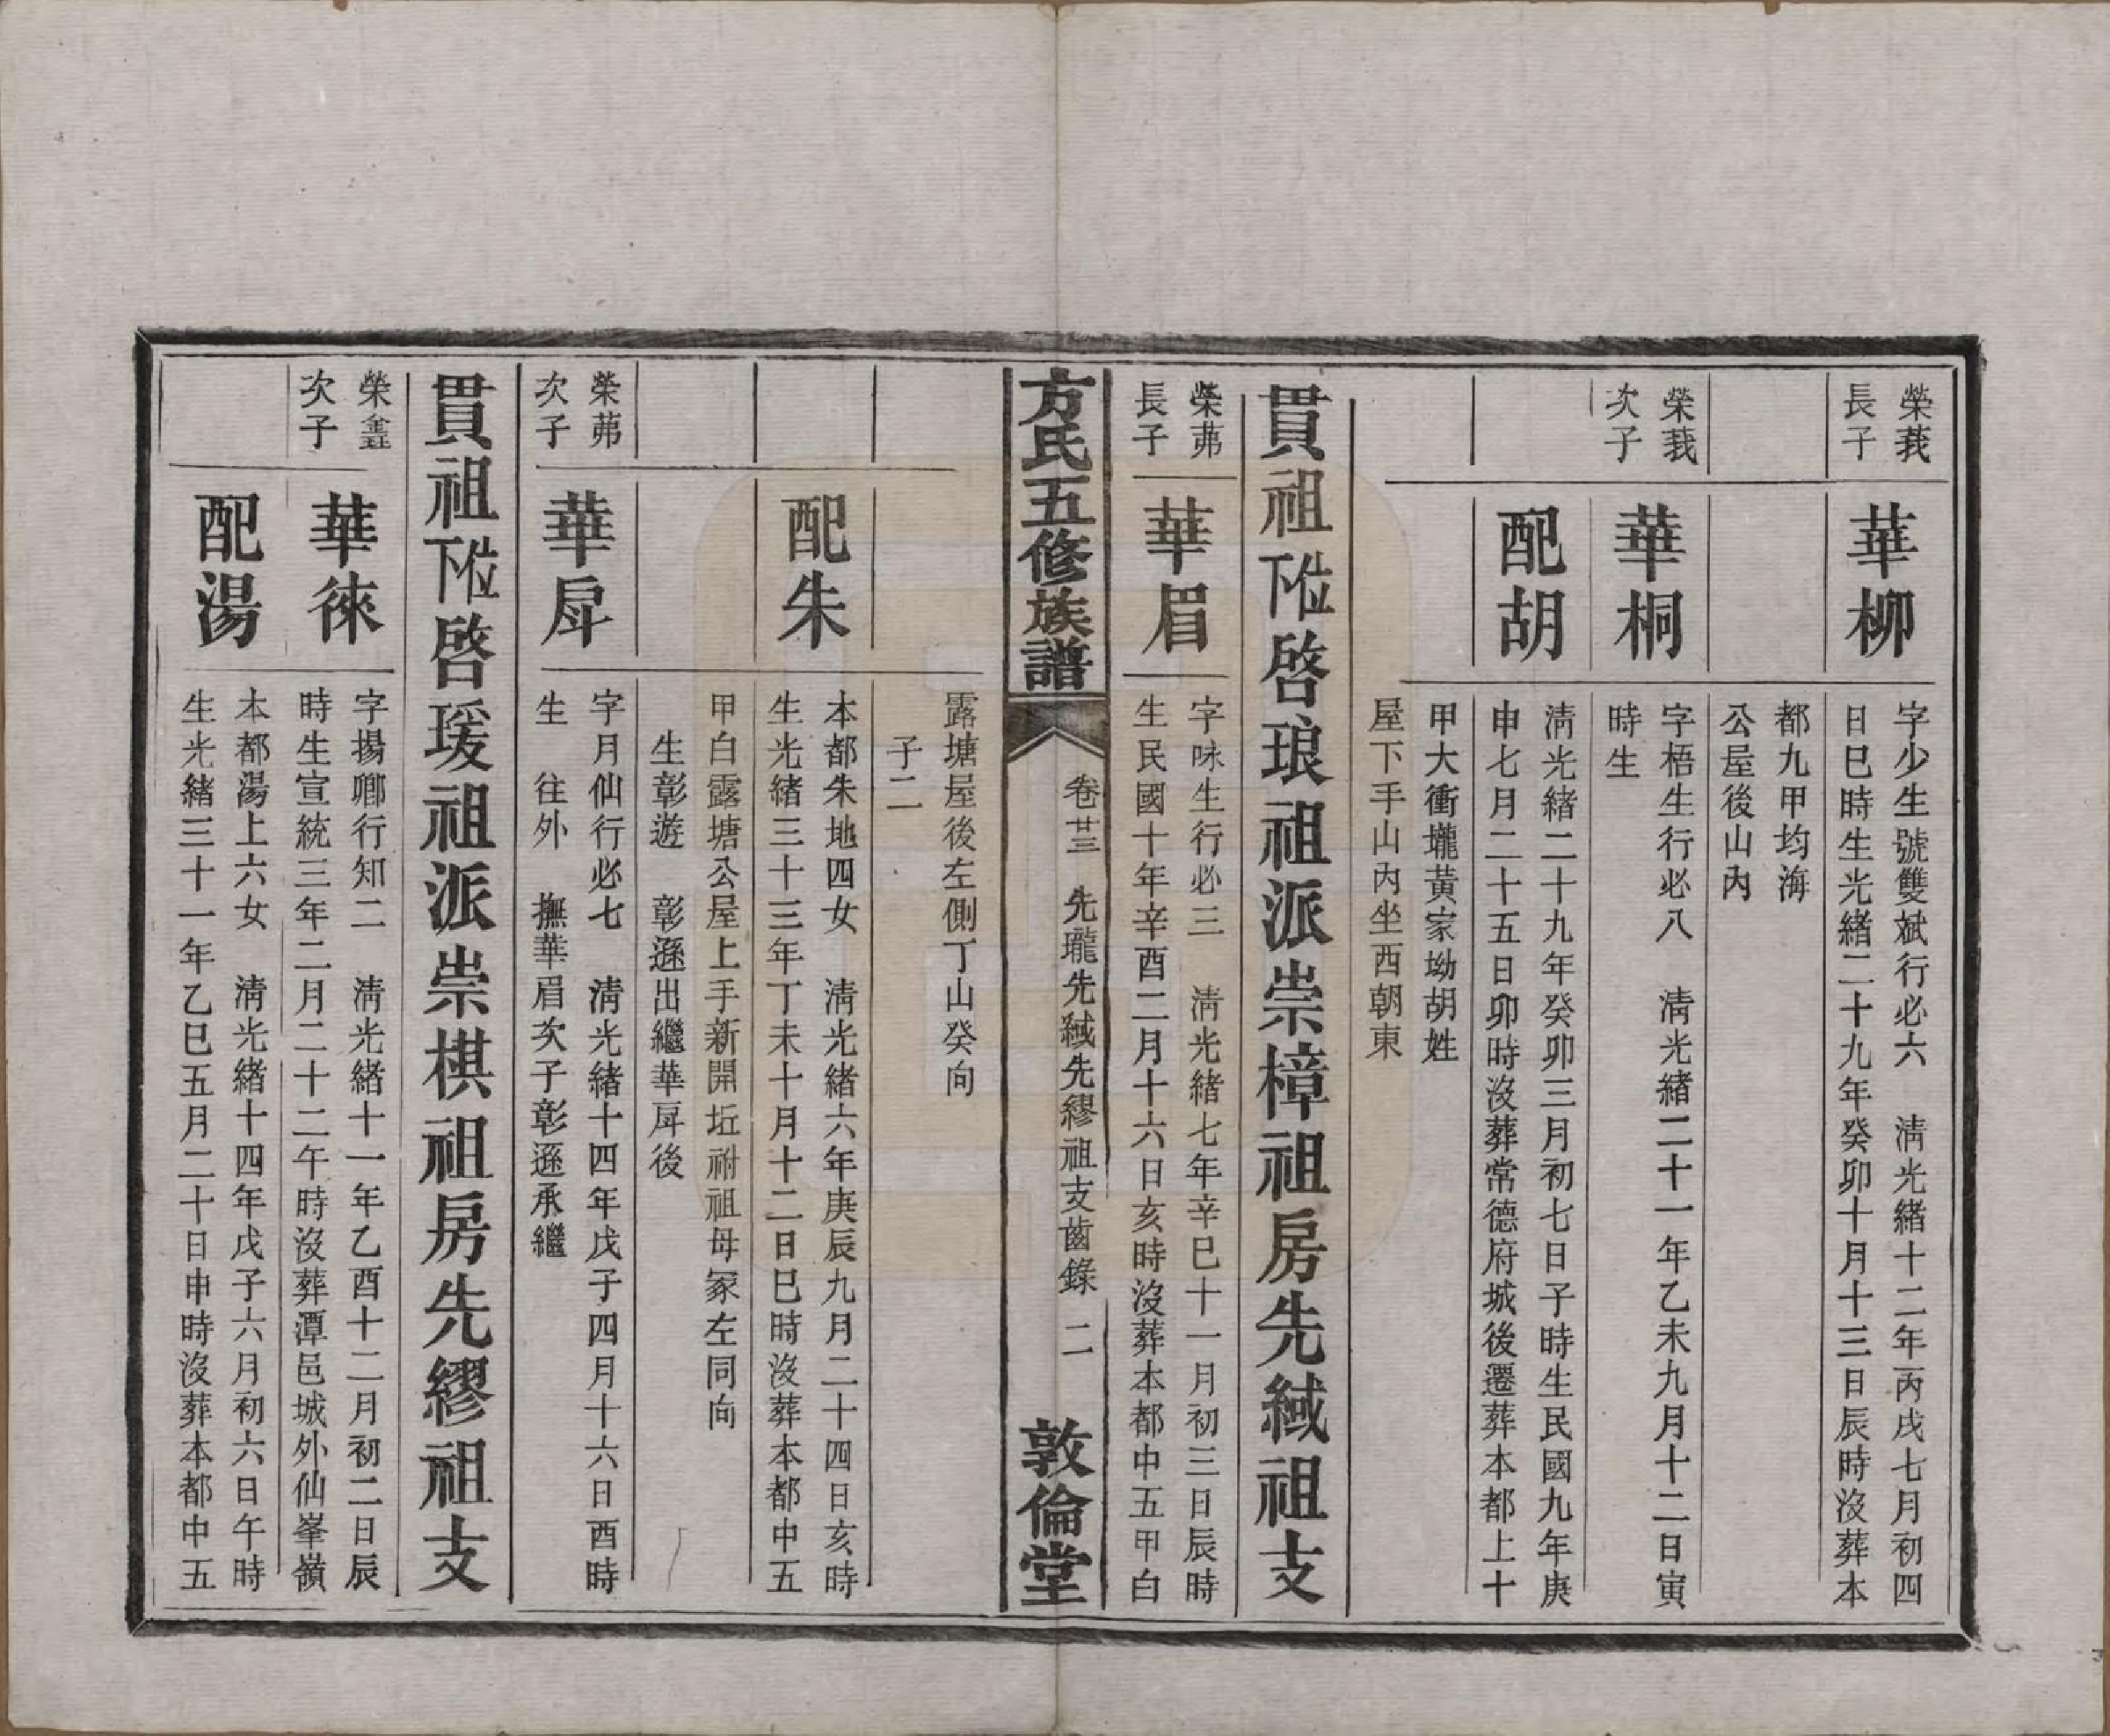 榮莪
長子
華柳
字少生號雙斌行必六　清光緒十二年丙戌七月初四
日巳時生光緒二十九年癸卯十月十三日辰時沒葬本
都九甲均海
公屋後山內
榮莪
次子
華桐
字梧生行必八　清光緒二十一年乙未九月十二日寅
時生
配胡
清光緒二十九年癸卯三月初七日子時生民國九年庚
申七月二十五日卯時沒葬常德府城後遷葬本都上十
甲大衝壠黃家坳胡姓
屋下手山內坐西朝東
貫祖位下啓琅祖派崇樟祖房先緎祖支
榮茀
長子
華眉
字味生行必三　清光緒七年辛巳十一月初三日辰時
生民國十年辛酉二月十六日亥時沒葬本都中五甲白
方氏五修族譜
卷廿三　先瓏先緎先繆祖支齒錄　二
敦倫堂
露塘屋後左側丁山癸向
子二
配朱
本都朱地四女　清光緒六年庚辰九月二十四日亥時
生光緒三十三年丁未十月十二日巳時沒葬本都中五
甲白露塘公屋上手新開坵祔祖母冢左同向
生彰遊　彰遜出繼華戽後
榮茀
次子
華戽
字月仙行必七　清光緒十四年戊子四月十六日酉時
生　往外　撫華眉次子彰遜承繼
貫祖位下啓瑗祖派崇棋祖房先繆祖支
榮
次子
華徠
字揚卿行知二　清光緒十一年乙酉十二月初二日辰
時生宣統三年二月二十二午時沒葬潭邑城外仙峯嶺
配湯
本都湯上六女　清光緒十四年戊子六月初六日午時
生光緒三十一年乙巳五月二十日申時沒葬本都中五